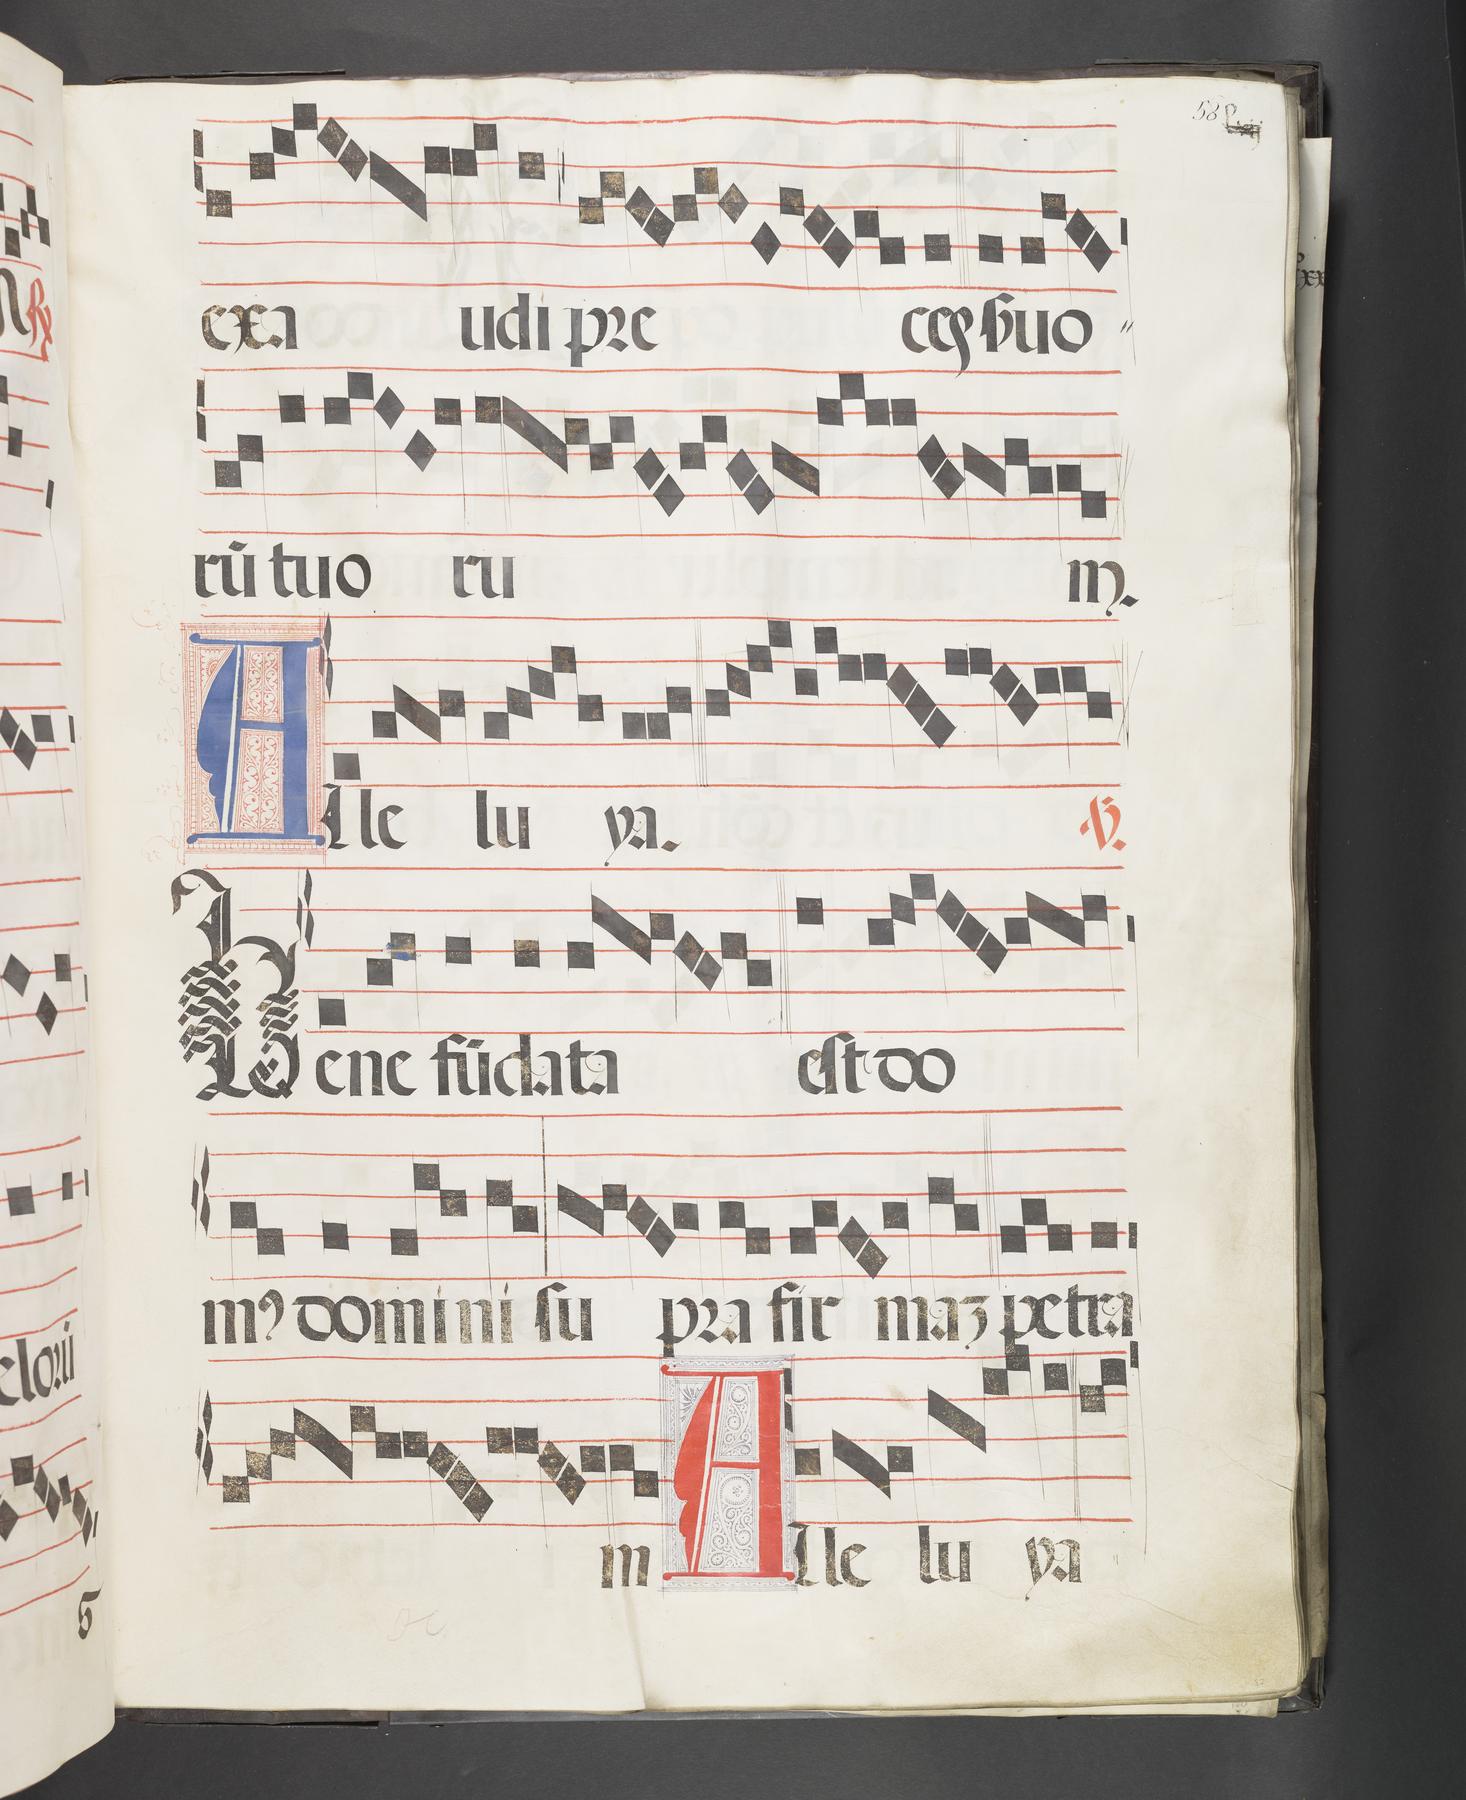 58
exa udi pre ceſ ſuo
rū tuo ru m.
Alle lu ya. ℣.
Bene fūdata eſt do
mꝰ domini ſu pra fir maʒ petra
m Alle lu ya